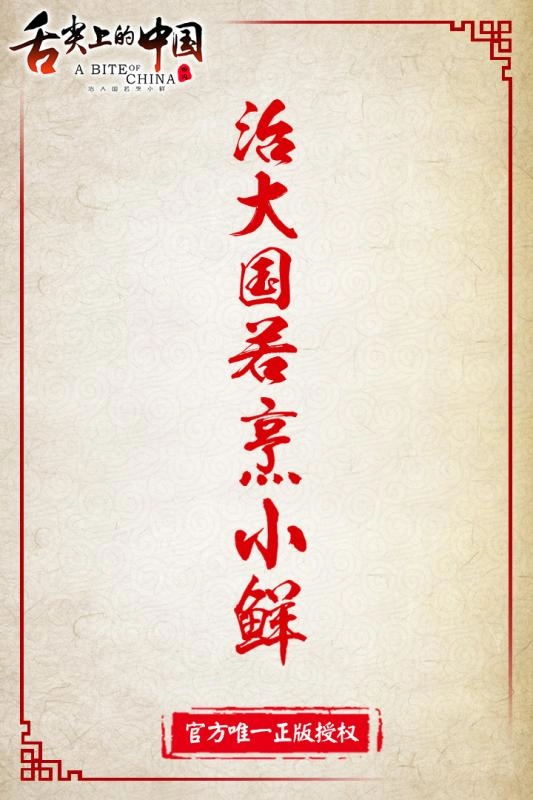 舌尖上的中国
A BITE OF
CHINA
治大国若烹小鲜
治大国若烹小鲜
官方唯一正版授权